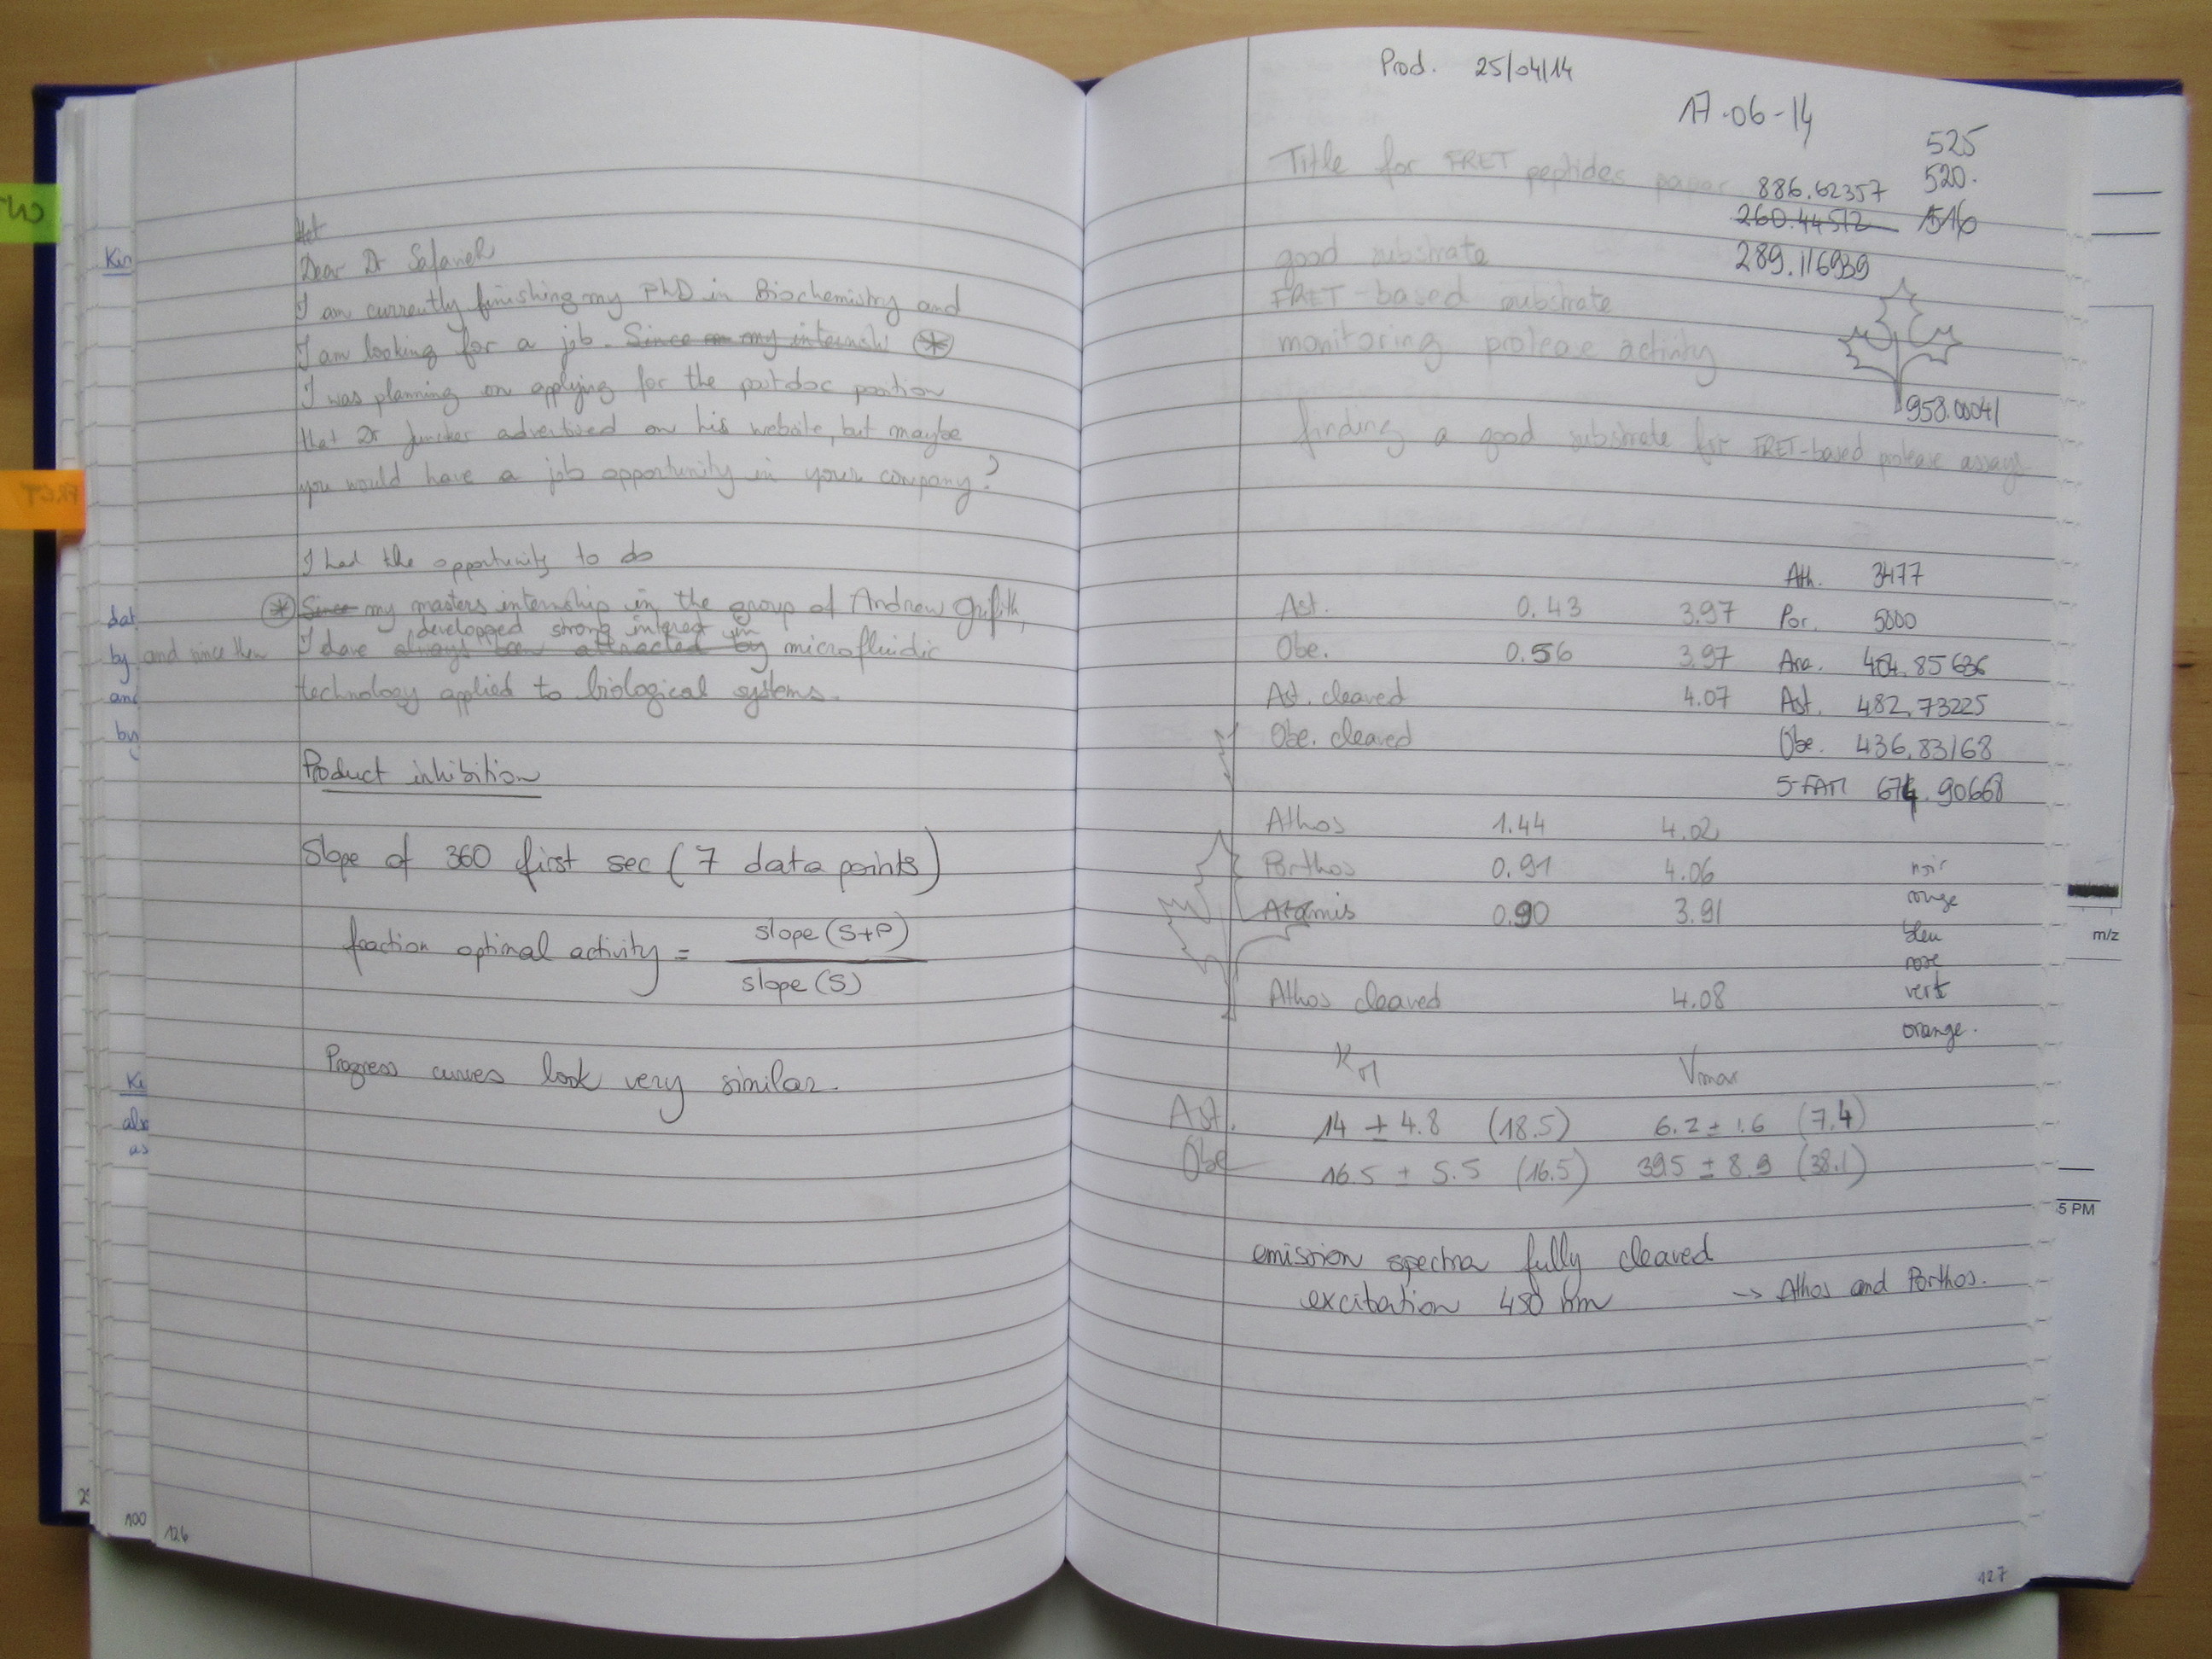 Dear Dr Safanieh
I am currently finishing my PhD in Biochemistry and
I am looking for a job. Since on my internsh *
I was planning on applying for the postdoc position
that Dr Juncker advertised on his website, but maybe
you would have a job opportunity in your company?
I had the opportunity to do
* Since my masters internship in the group of Andrew Griffith,
developped strong interest in
and since then I have always been attracted by microfluidic
technology applied to biological systems.
Product inhibition
Slope of 360 first sec (7 data points)
fraction optimal activity = slope (S+P)
slope (S)
Progress curves look very similar.
100
126
Kin
dat
by
and
by
als
as
Prod. 25/04/14
17-06-14
525
Title for FRET peptides paper
520.
886.62357
260.44512
516
289.116939
good substrate
FRET-based substrate
monitoring protease activity
958.00041
finding a good substrate for FRET-based protease assays
Ath. 3477
Ast. 0.43 3.97 Por. 5000
Obe. 0.56 3.97 Ara. 404.85636
Ast. cleaved 4.07 Ast. 482.73225
Obe. cleaved Obe. 436.83168
5-FAM 674.90668
Athos 1.44 4.02
Porthos 0.91 4.06 noir
Aramis 0.90 3.91 rouge
bleu
rose
Athos cleaved 4.08 vert
orange.
KM Vmax
Ast. 14 ± 4.8 (18.5) 6.2 ± 1.6 (7.4)
Obe 16.5 ± 5.5 (16.5) 39.5 ± 8.9 (38.1)
emission spectra fully cleaved
excitation 480 nm -> Athos and Porthos.
127
m/z
5 PM
FRET